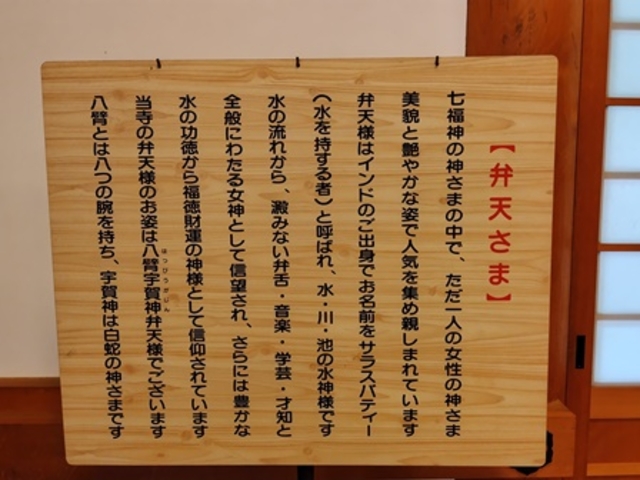 【弁天さま】
七福神の神さまの中で、ただ一人の女性の神さま
美貌と艶やかな姿で人気を集め親しまれています
弁天様はインドのご出身でお名前をサラスバティー
(水を持する者)と呼ばれ、水・川・池の水神様です
水の流れから、澱みない弁舌・音楽・学芸・才知と
全般にわたる女神として信望され、さらには豊かな
水の功徳から福徳財運の神様として信仰されています
当寺の弁天様のお姿は八臂宇賀神弁天様でございます
はっぴうがじん
八臂とは八つの腕を持ち、宇賀神は白蛇の神さまです